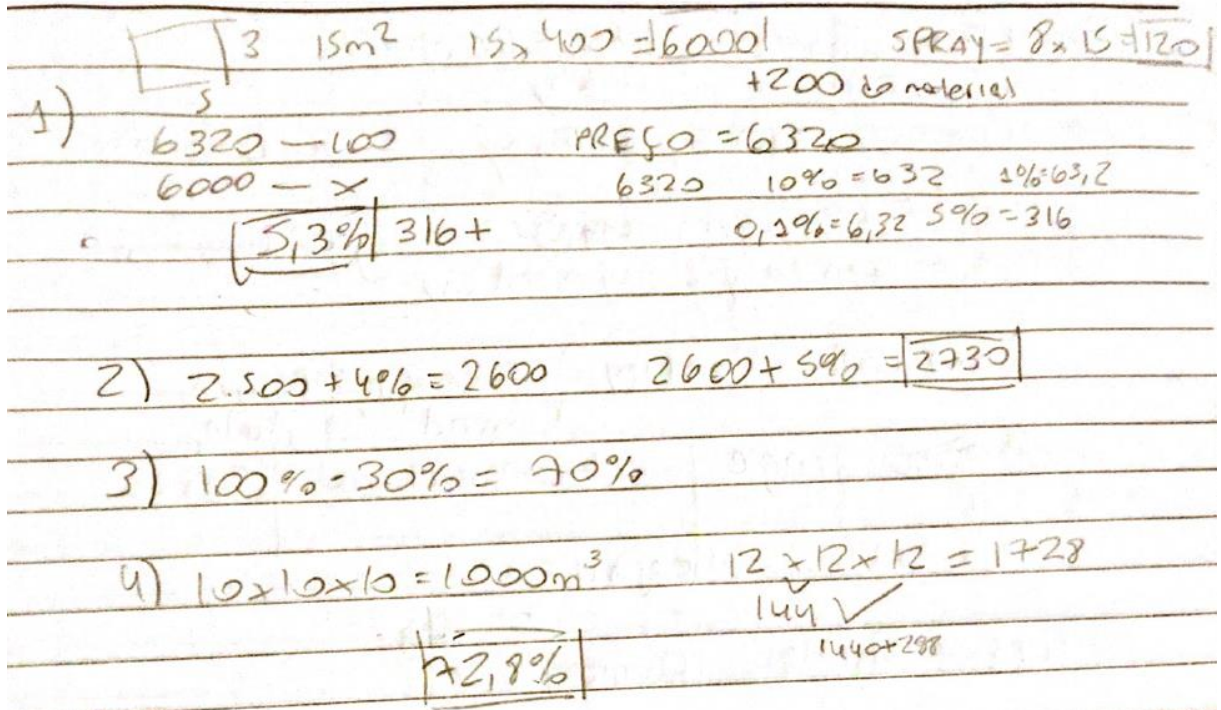 3 15m² 15x 400 = 6000 SPRAY = 8x 15 = 120
5 +200 do material
1)
6320 — 100 PREÇO = 6320
6000 — x 6320 10% = 632 1%=63,2
5,3% 316+ 0,1%=6,32 5% = 316
2) 2.500 + 4% = 2600 2600 + 5% = 2730
3) 100% - 30% = 70%
4) 10x10x10 = 1000m³ 12 x 12 x 12 = 1728
144
1440+288
72,8%